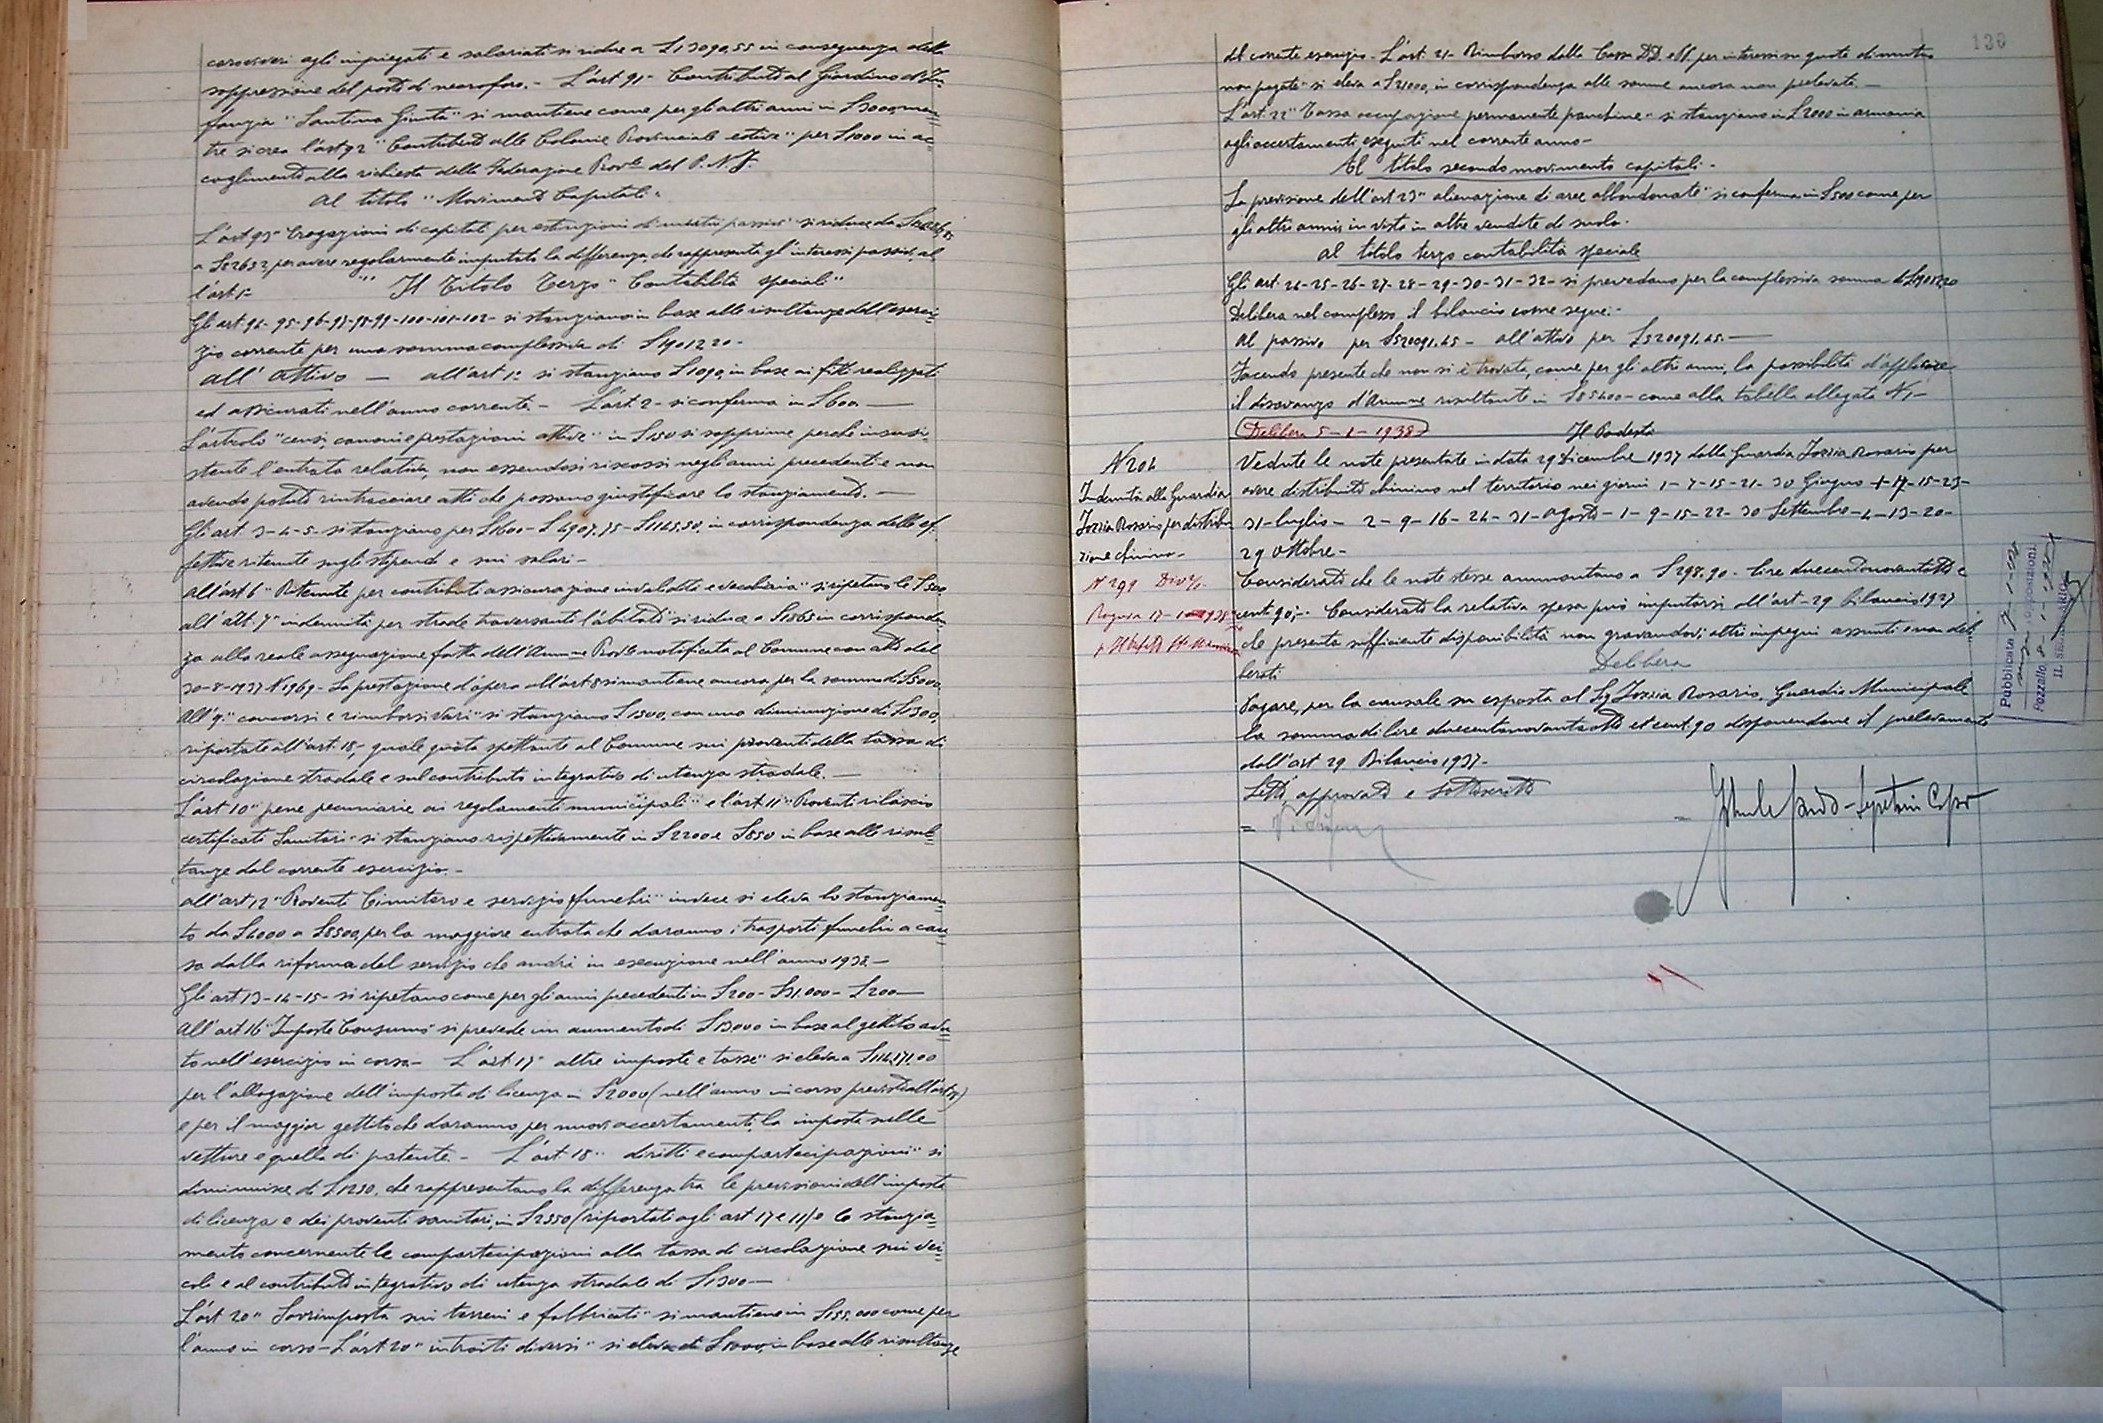 caroviveri agli impiegati e salariati si riduce a £13090,55 in conseguenza della
soppressione del posto di necroforo. - L'art. 91 - Contributo al Giardino d'In-
fanzia "Santina Giunta" si mantiene come per gli altri anni in £3000, men-
tre si crea l'art 92 "Contributo alle Colonie Provinciale estive" per £1000 in ac-
coglimento alla richiesta della Federazione Prov.le del P.N.F.
Al titolo "Movimento Capitali"
L'art 93 "Erogazioni di capitali per estinzioni di mutui passivi" si riduce da
a £82632, per avere regolarmente imputato la differenza che rappresenta gl'interessi passivi, al
l'art 1-
Il Titolo Terzo "Contabilità speciali"
Gli art. 94-95-96-97-98-99-100-101-102- si stanziano in base alle risultanze dell'eserci-
zio corrente per una somma complessiva di £1901220-
All'Attivo — all'art 1- si stanziano £1090, in base ai fitti realizzati
ed assicurati nell'anno corrente. - L'art. 2 - si conferma in £600. —
L'articolo "censi canoni e prestazioni attive" in £150 si sopprime perchè insussi-
stente l'entrata relativa, non essendosi riscossi negli anni precedenti e non
avendo potuto rintracciare atti che possano giustificare lo stanziamento. —
Gli art. 3-4-5- si stanziano per £1600 - £4907,75 - £1145,50, in corrispondenza delle ef-
fettive ritenute sugli stipendi e sui salari -
All'art 6 "Ritenute per contributi assicurazione invalidità e vecchiaia" si ripetono le £500
all'Art. 7 "indennità per strade traversanti l'abitato" si riduce a £1865 in corrisponden
za alla reale assegnazione fatta dell'Amm.ne Prov.le notificata al Comune con atto del
30-8-1937 N 1969 - La prestazione d'opera all'art 8 si mantiene ancora per la somma di £5000
All'9." concorsi e rimborsi vari" si stanziano £1500, con una diminuzione di £1300,
riportate all'art. 18, quale quota spettante al Comune sui proventi della tassa di
circolazione stradale e sul contributo integrativo di utenza stradale. —
L'art 10 "pene pecuniarie ai regolamenti municipali" e l'art. 11 "Proventi rilascio
certificati Sanitari" si stanziano rispettivamente in £2200 e £850 in base alle risul-
tanze dal corrente esercizio. -
all'art 12 "Proventi Cimitero e servizio funebri" invece si eleva lo stanziamen-
to da £4000 a £8500, per la maggiore entrata che daranno i trasporti funebri a cau
sa dalla riforma del servizio che andrà in esecuzione nell'anno 1938 -
Gli art 13-14-15- si ripetono come per gli anni precedenti in £200 - £31.000 - £200 —
All'art 16 "Imposte Consumo" si prevede un aumento di £13000 in base al gettito avu-
to nell'esercizio in corso - L'art 17 "altre imposte e tasse" si eleva a £114.171,00
per l'allogazione dell'imposta di licenza in £2000 (nell'anno in corso previsti all'art 18)
e per il maggior gettito che daranno, per nuovi accertamenti, la imposta sulle
vetture e quella di patente. - L'art. 18 "diritti e compartecipazioni" si
diminuisce di £1250, che rappresentano la differenza tra le previsioni dell'imposta
di licenza e dei proventi sanitari, in £2550 (riportati agli art 17 e 11) e lo stanzia-
mento concernente le compartecipazioni alla tassa di circolazione sui vei-
coli e al contributo integrativo di utenza stradale di £1300 —
L'art 20 "Sovrimposta sui terreni e fabbricati" si mantiene in £155.000 come per
l'anno in corso - L'art 20 "introiti diversi" si eleva di £5000, in base alle risultanze
136
del corrente esercizio - L'art. 21 - Rimborso dalla Cassa DD. e PP. per interessi su quote di mutuo
non pagate" si eleva a £21000, in corrispondenza alle somme ancora non prelevate. —
L'art. 22 "Tassa occupazione permanente panchine" si stanziano in £2000 in armonia
agli accertamenti eseguiti nel corrente anno -
Al titolo secondo movimento capitali -
La previsione dell'art 23 "alienazione di aree abbandonate" si conferma in £500 come per
gli altri anni in vista in altre vendite di suolo.
Al titolo terzo contabilità speciale
Gli art. 24-25-26-27-28-29-30-31-32- si prevedono per la complessiva somma di £1901220
Delibera nel complesso il bilancio come segue: -
Al passivo per £520091.45 - all'attivo per £520091.45. —
Facendo presente che non si è trovata, come per gli altri anni, la possibilità d'applicare
il disavanzo d'Amm.ne risultante in £85400 - come alla tabella allegata N 1 -
Delibera 5-1-1938 Il Podestà
N 204
Indennità alla Guardia
Iozzia Rosario per distribu
zione chinino -
N 299 Div
Ragusa 17-1-1938
Vedute le note presentate in data 29 Dicembre 1937 dalla Guardia Iozzia Rosario per
avere distribuito chinino nel territorio nei giorni 1-7-15-21-30 Giugno + 17-15-23-
31 - luglio - 2-9-16-24-31 - agosto - 1-9-15-22-30 Settembre - 4-13-20-
29 Ottobre -
Considerato che le note stesse ammontano a £298.90 - lire duecentonovantotto e
cent. 90; - Considerato la relativa spesa può imputarsi all'art - 29 bilancio 1937
che presenta sufficiente disponibilità non gravandovi altri impegni assunti o non deli-
berati
Delibera
Pagare, per la causale su esposta al Sig Iozzia Rosario, Guardia Municipale
la somma di lire duecentonovantotto et cent. 90 disponendone il prelevamento
dall'art 29 Bilancio 1937 -
Letto, approvato e sottoscritto
Pubblicata
opposizioni
Pozzallo
IL